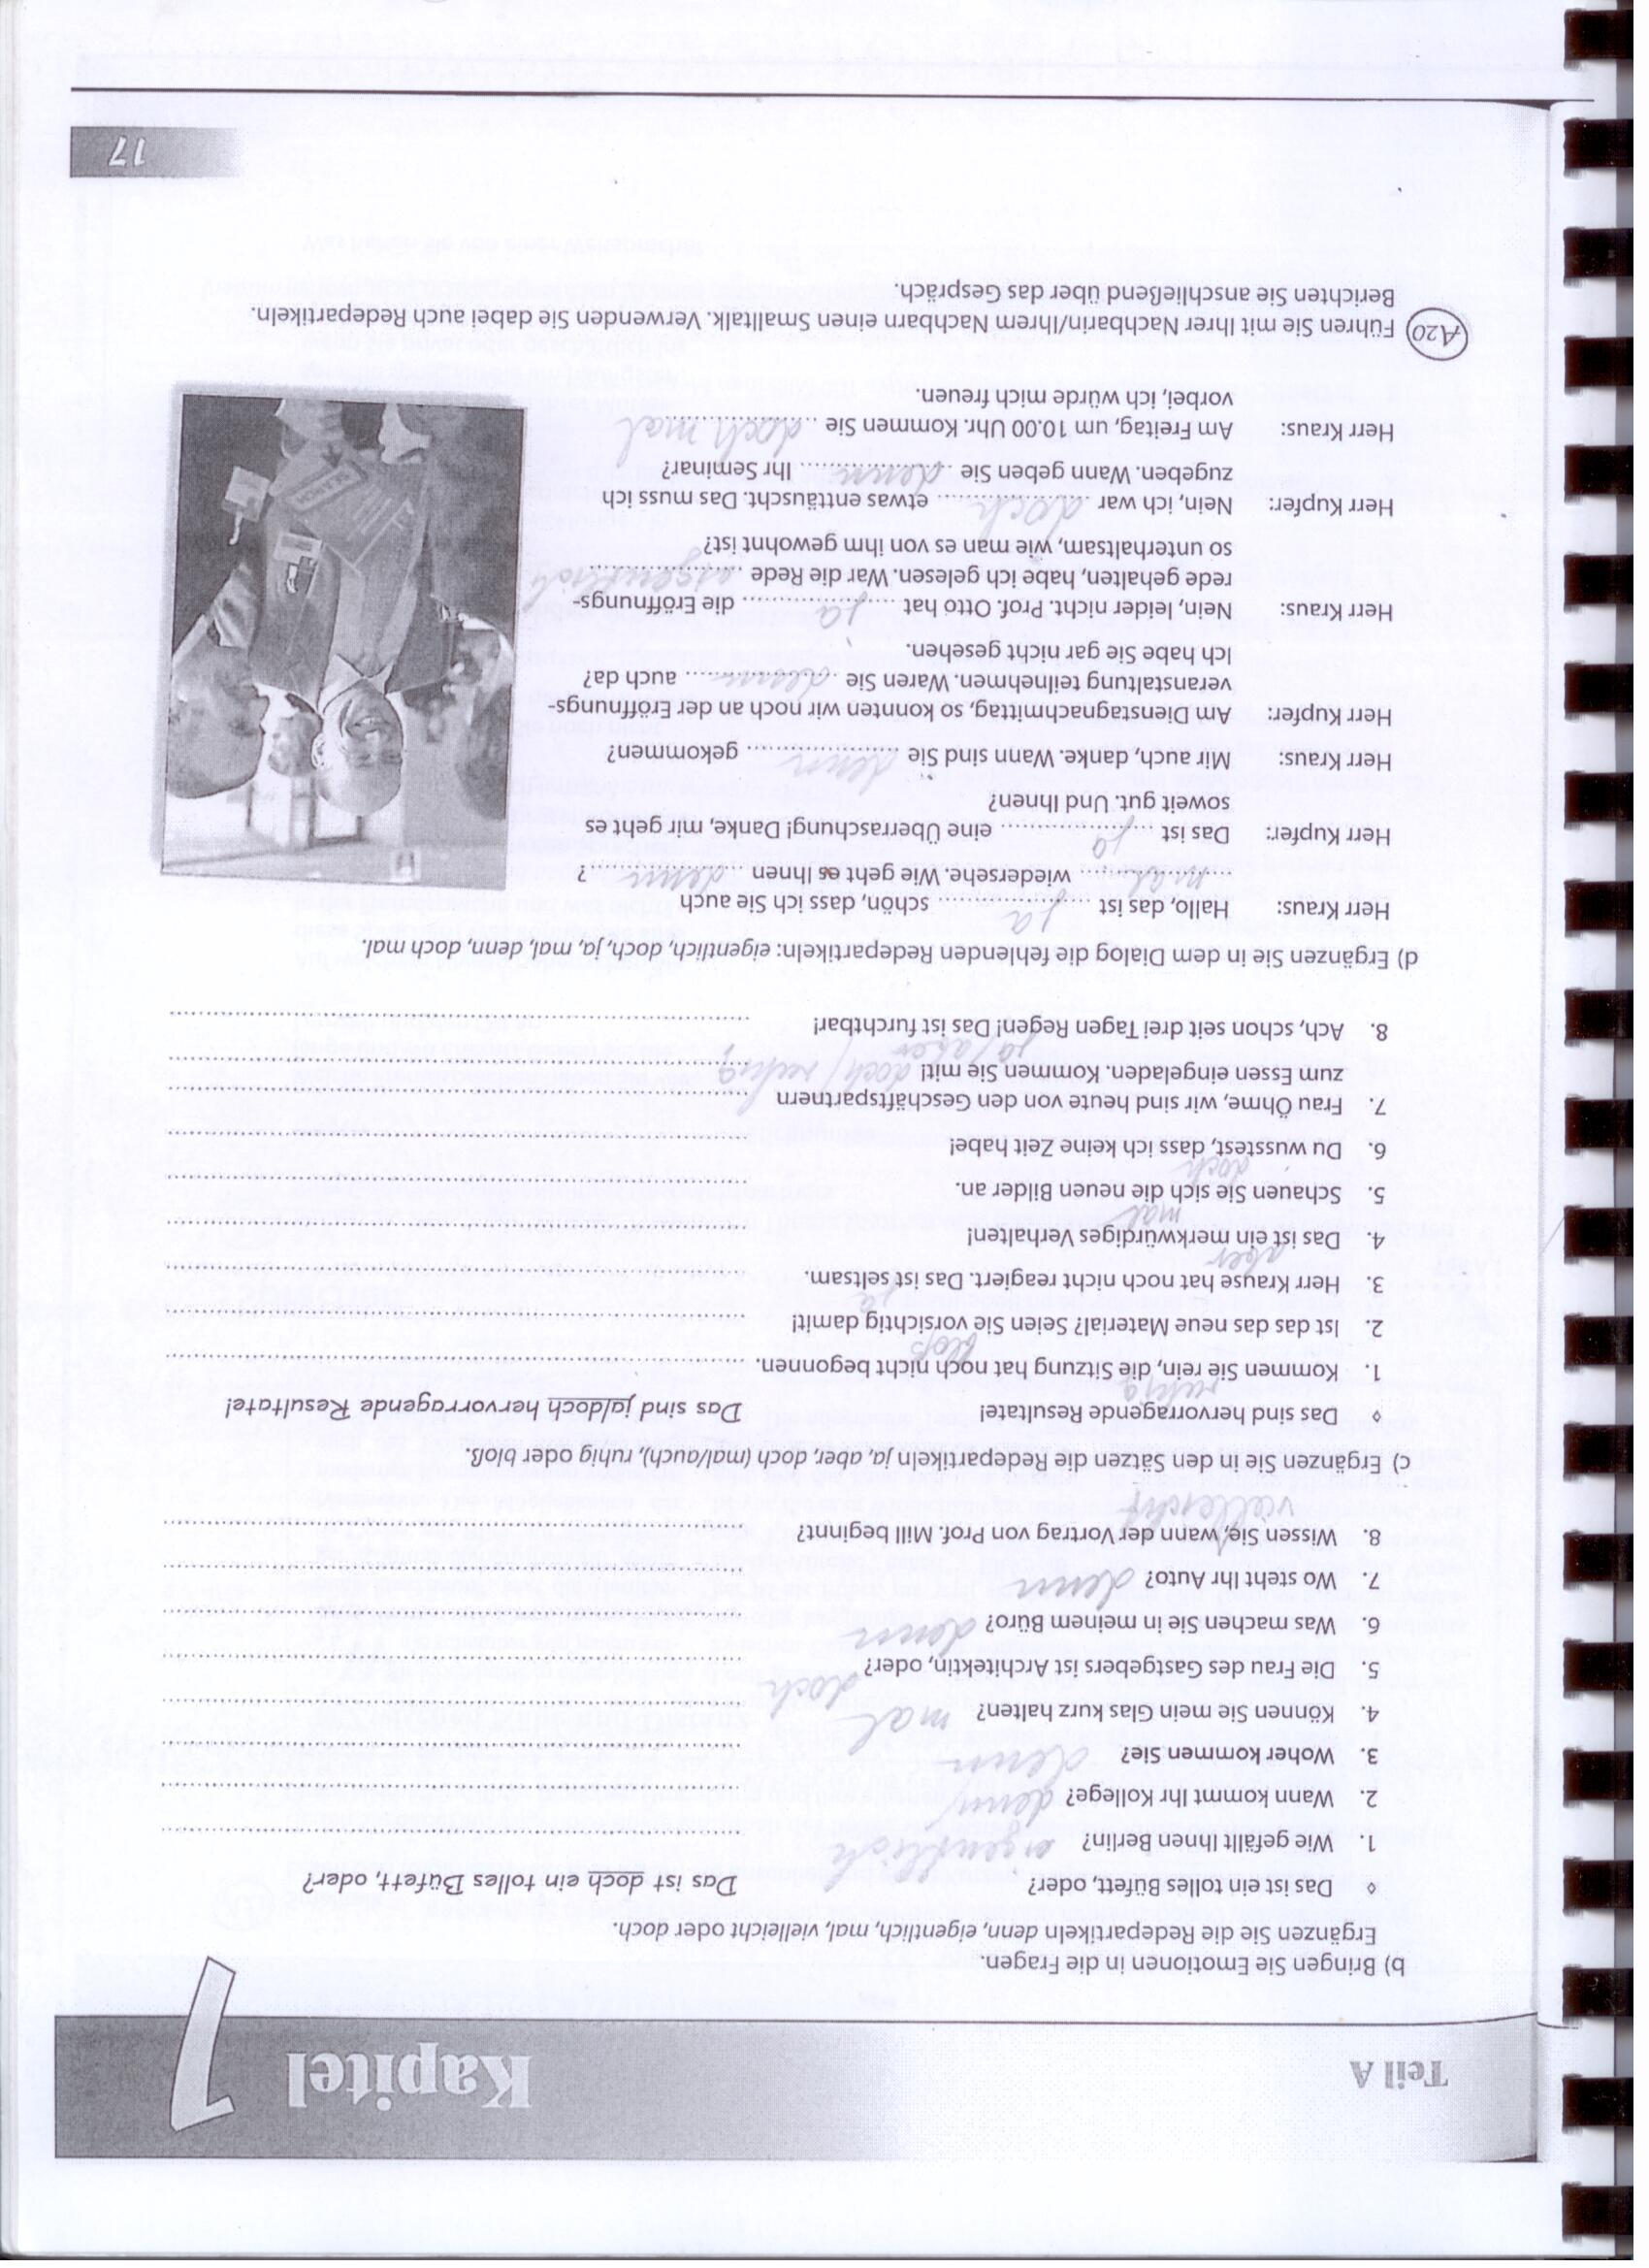 Teil A
Kapitel 1
b) Bringen Sie Emotionen in die Fragen.
Ergänzen Sie die Redepartikeln denn, eigentlich, mal, vielleicht oder doch.
◊ Das ist ein tolles Büfett, oder? Das ist doch ein tolles Büfett, oder?
1. Wie gefällt Ihnen Berlin? eigentlich
2. Wann kommt Ihr Kollege? denn
3. Woher kommen Sie? denn
4. Können Sie mein Glas kurz halten? mal
5. Die Frau des Gastgebers ist Architektin, oder? doch
6. Was machen Sie in meinem Büro? denn
7. Wo steht Ihr Auto? denn
8. Wissen Sie, wann der Vortrag von Prof. Mill beginnt?
vielleicht
c) Ergänzen Sie in den Sätzen die Redepartikeln ja, aber, doch (mal/auch), ruhig oder bloß.
◊ Das sind hervorragende Resultate! Das sind ja/doch hervorragende Resultate!
ruhig
1. Kommen Sie rein, die Sitzung hat noch nicht begonnen.
bloß
2. Ist das das neue Material? Seien Sie vorsichtig damit!
ja
3. Herr Krause hat noch nicht reagiert. Das ist seltsam.
aber
4. Das ist ein merkwürdiges Verhalten!
mal
5. Schauen Sie sich die neuen Bilder an.
doch
6. Du wusstest, dass ich keine Zeit habe!
7. Frau Öhme, wir sind heute von den Geschäftspartnern
zum Essen eingeladen. Kommen Sie mit! doch / ruhig
ja / aber
8. Ach, schon seit drei Tagen Regen! Das ist furchtbar!
d) Ergänzen Sie in dem Dialog die fehlenden Redepartikeln: eigentlich, doch, ja, mal, denn, doch mal.
Herr Kraus: Hallo, das ist ja schön, dass ich Sie auch
mal wiedersehe. Wie geht es Ihnen denn ?
Herr Kupfer: Das ist ja eine Überraschung! Danke, mir geht es
soweit gut. Und Ihnen?
Herr Kraus: Mir auch, danke. Wann sind Sie denn gekommen?
Herr Kupfer: Am Dienstagnachmittag, so konnten wir noch an der Eröffnungs-
veranstaltung teilnehmen. Waren Sie denn auch da?
Ich habe Sie gar nicht gesehen.
Herr Kraus: Nein, leider nicht. Prof. Otto hat ja die Eröffnungs-
rede gehalten, habe ich gelesen. War die Rede eigentlich
so unterhaltsam, wie man es von ihm gewohnt ist?
Herr Kupfer: Nein, ich war doch etwas enttäuscht. Das muss ich
zugeben. Wann geben Sie denn Ihr Seminar?
Herr Kraus: Am Freitag, um 10.00 Uhr. Kommen Sie doch mal
vorbei, ich würde mich freuen.
A20 Führen Sie mit Ihrer Nachbarin/Ihrem Nachbarn einen Smalltalk. Verwenden Sie dabei auch Redepartikeln.
Berichten Sie anschließend über das Gespräch.
17